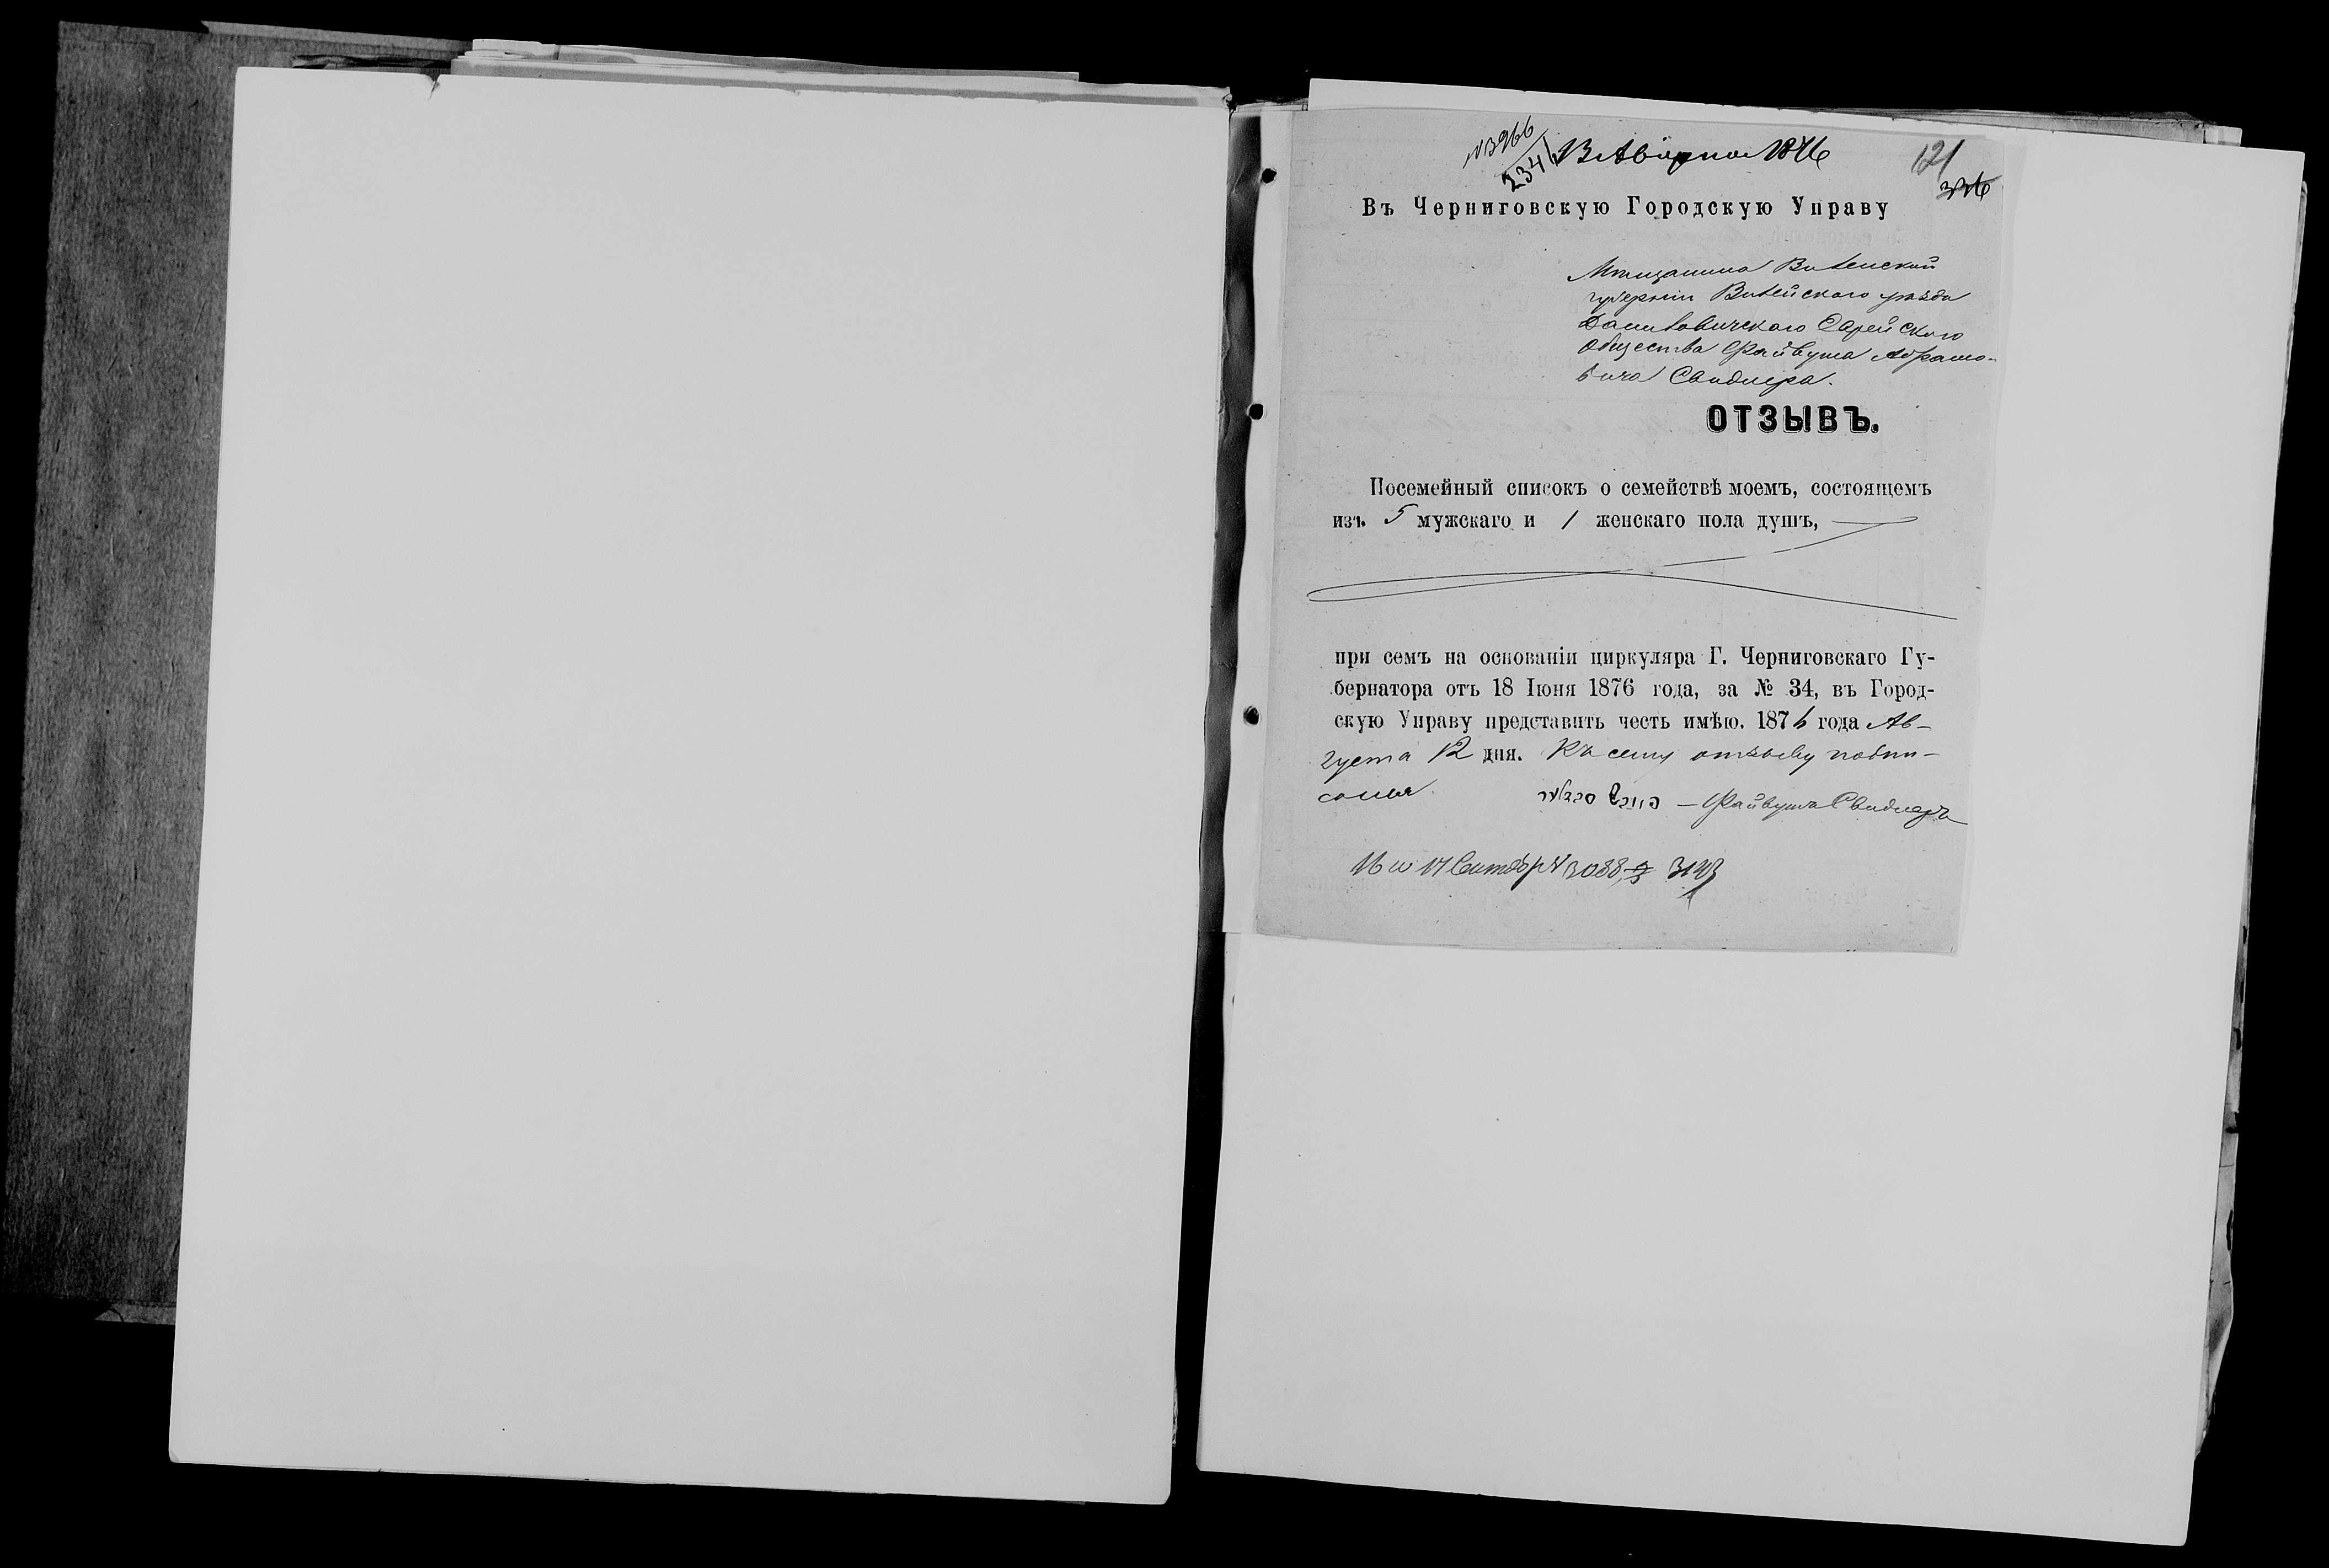 № 3966
2341
13 Августа 1876
121
326
Въ Черниговскую Городскую Управу
Мѣщанина Виленской
губерніи Вилейскаго уѣзда
Еврейскаго
Общества Файвуша Абрамо-
вича Свидлера.
ОТЗЫВЪ.
Посемейный списокъ о семействѣ моемъ, состоящемъ
изъ 5 мужскаго и 1 женскаго пола душъ,
при семъ на основаніи циркуляра Г. Черниговскаго Гу-
бернатора отъ 18 Іюня 1876 года, за № 34, въ Город-
скую Управу представить честь имѣю. 1876 года Ав-
густа 12 дня. Къ сему отзыву подпи-
сался
— Файвушъ Свидлеръ
16 и 17 Сентябр № 3088